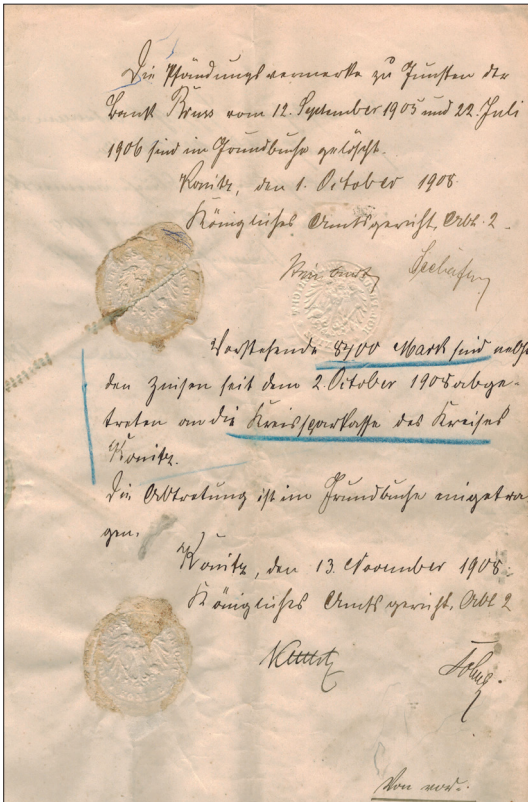 Die Pfändungsvermerke zu Gunsten der
Bank Bruss vom 12. September 1905 und 22. Juli
1906 sind im Grundbuche gelöscht.
Konitz, den 1. October 1908.
Königliches Amtsgericht, Abt. 2.
Vorstehende 8700 Mark sind nebst
den Zinsen seit dem 2. October 1908 abge-
treten an die Kreissparkasse des Kreises
Konitz.
Die Abtretung ist im Grundbuche eingetra
gen.
Konitz, den 13. November 1908.
Königliches Amtsgericht, Abt 2